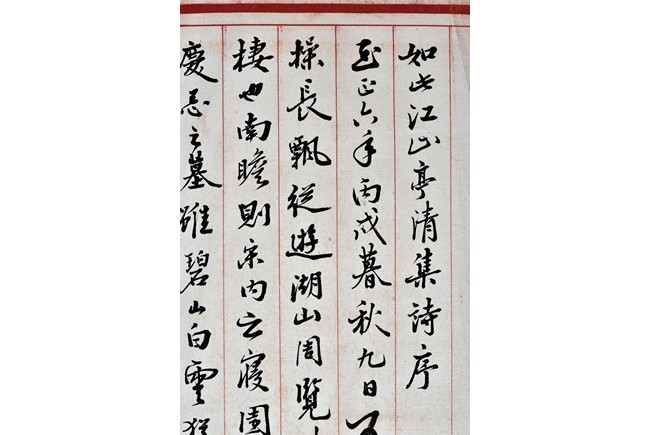 如此江山亭清集詩序
至正六年丙戌暮秋九日
操長瓢從遊湖山周覽
棲也南瞻則宋内之寢園
慶忌之墓雖碧山白雲